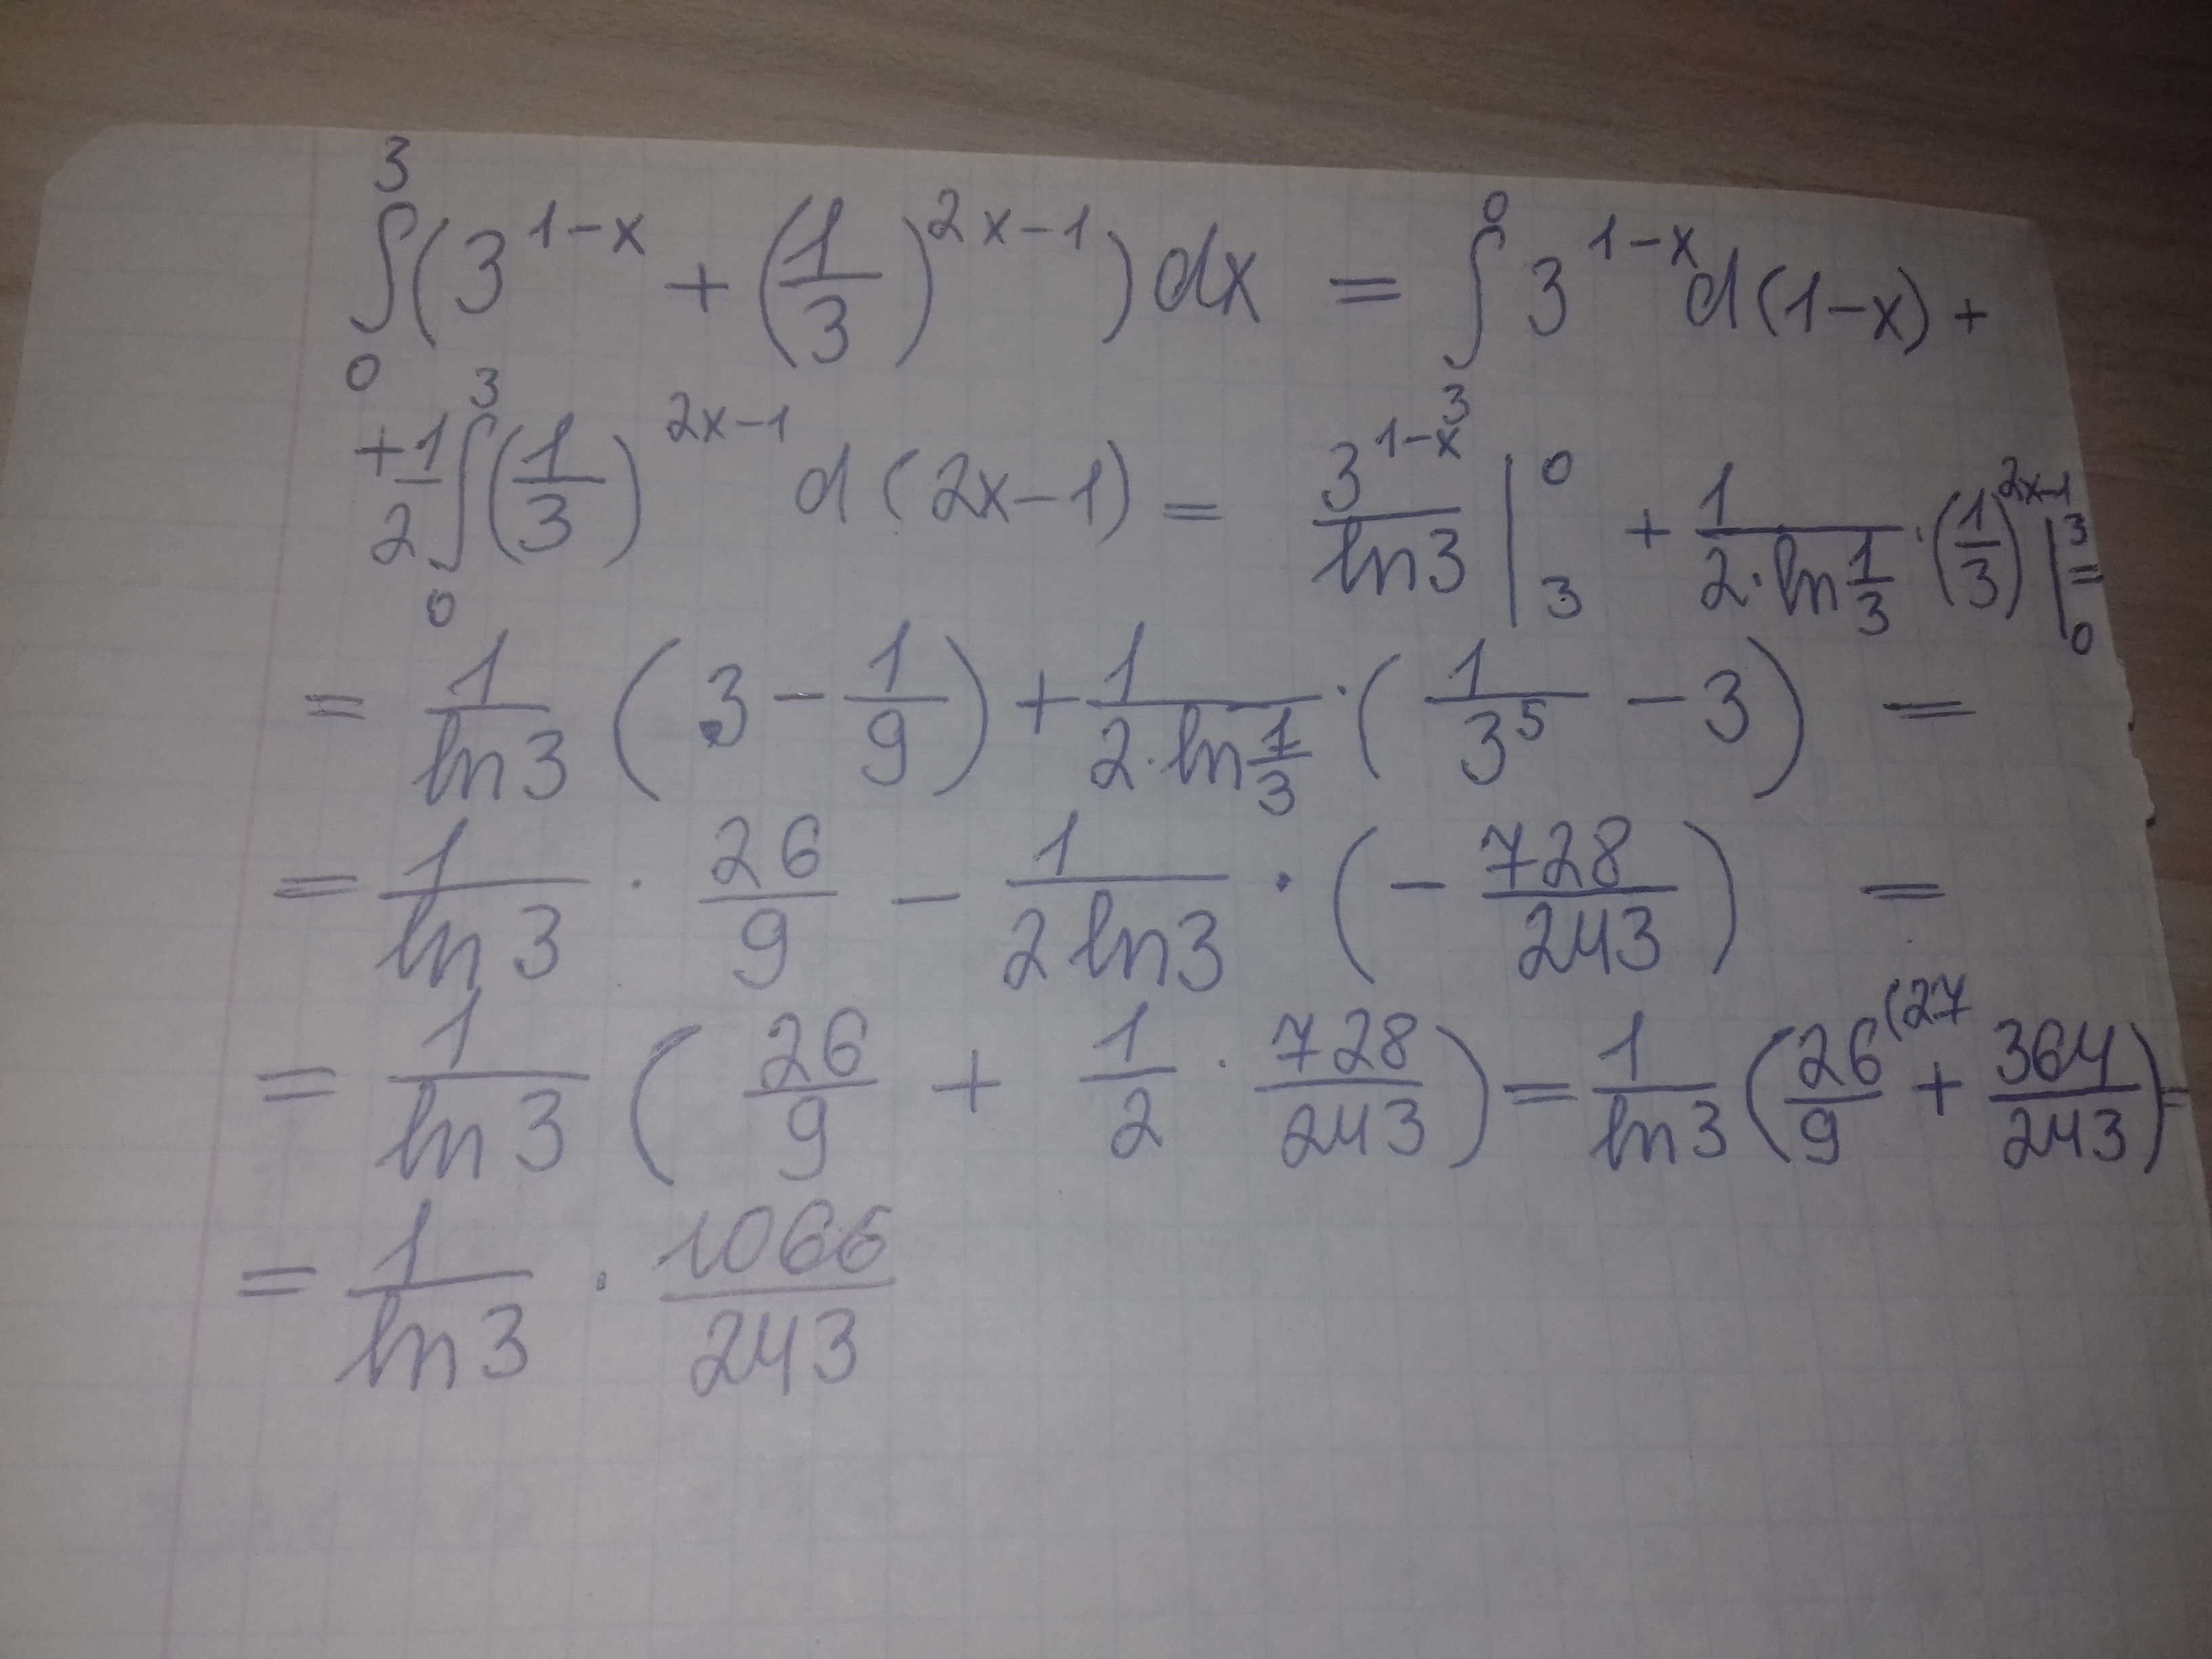 ∫₀³ (3^(1-x) + (1/3)^(2x-1)) dx = ∫₃⁰ 3^(1-x) d(1-x) +
+ 1/2 ∫₀³ (1/3)^(2x-1) d(2x-1) = 3^(1-x)/ln3 |₃⁰ + 1/(2·ln 1/3) · (1/3)^(2x-1) |₀³ =
= 1/ln3 (3 - 1/9) + 1/(2·ln 1/3) · (1/3⁵ - 3) =
= 1/ln3 · 26/9 - 1/(2ln3) · (- 728/243) =
= 1/ln3 (26/9 + 1/2 · 728/243) = 1/ln3 (26/9 (27 + 364/243) =
= 1/ln3 · 1066/243